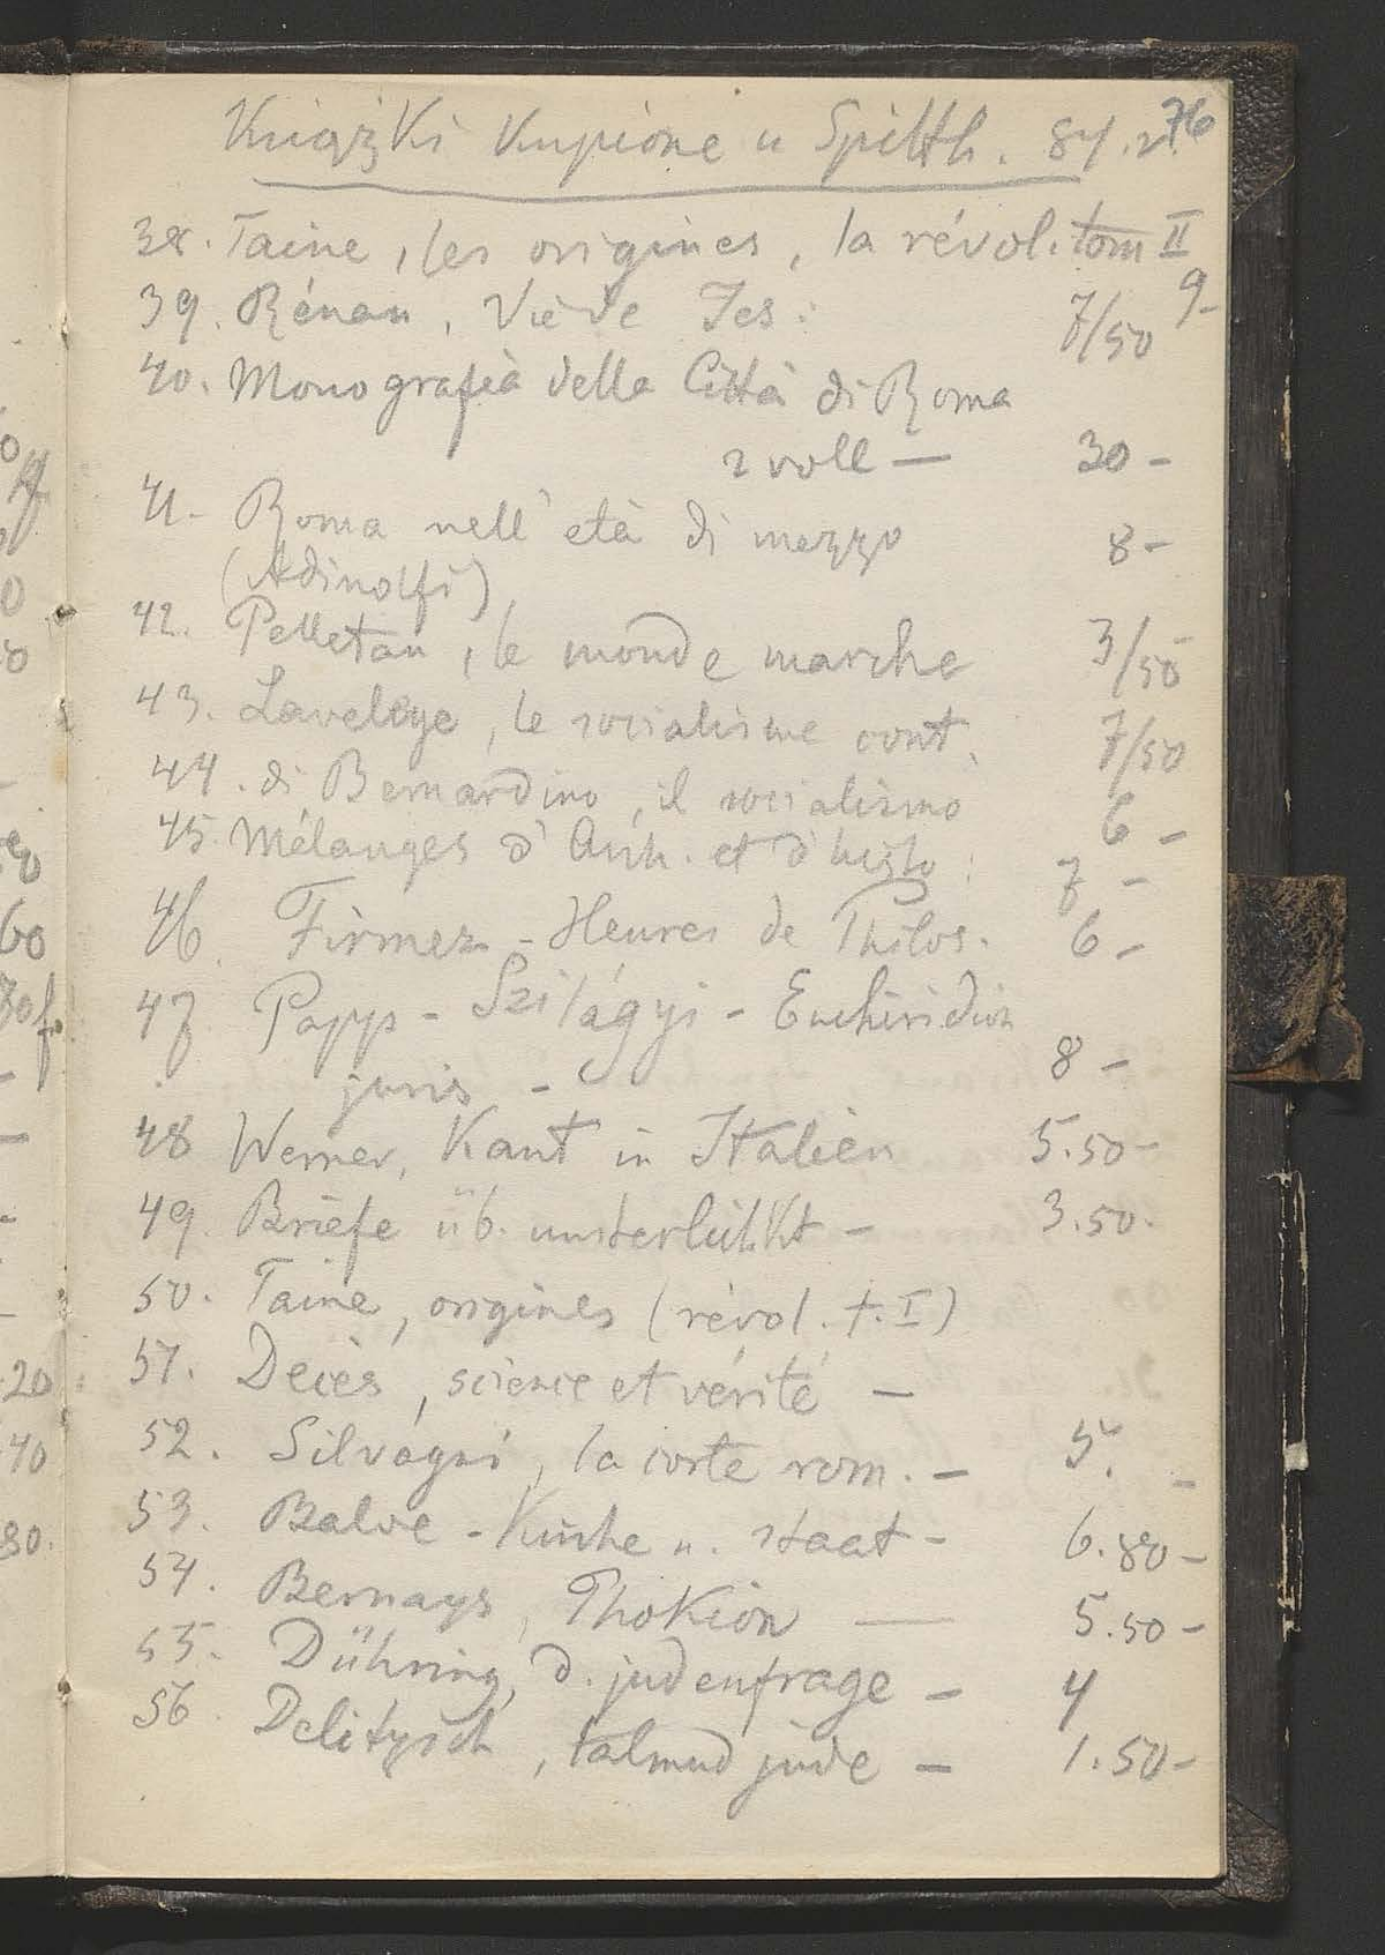 76
Książki kupione u Spitth. 84. r.
38. Taine, les origines, la révol. tom II
9-
39. Rénan, Vie de Jes: 7/50
40. Monografia della Città di Roma
2 voll — 30 -
41- Roma nell' età di mezzo 8 -
(Adinolfi)
42. Pelletan, le monde marche 3/50
43. Laveleye, le socialisme cont. 7/50
44. di Bernardino, il socialismo 6 -
45. Mélanges d'Arch. et d'histo: 7 -
46. Firmez - Heures de Philos. 6 -
47 Papp - Szilágyi - Enchiridion
juris - 8 -
48 Werner, Kant in Italien 5.50-
49. Briefe üb. unsterblichkt - 3.50.
50. Taine, origines (révol. t. I)
51. Decès, science et vérité -
52. Silvagni, la corte rom. - 5. -
53. Balve - Kirche u. staat - 6.80-
54. Bernays, Phokion — 5.50-
55. Dühring, d. judenfrage - 4
56. Delitzsch, talmud jude - 1.50-